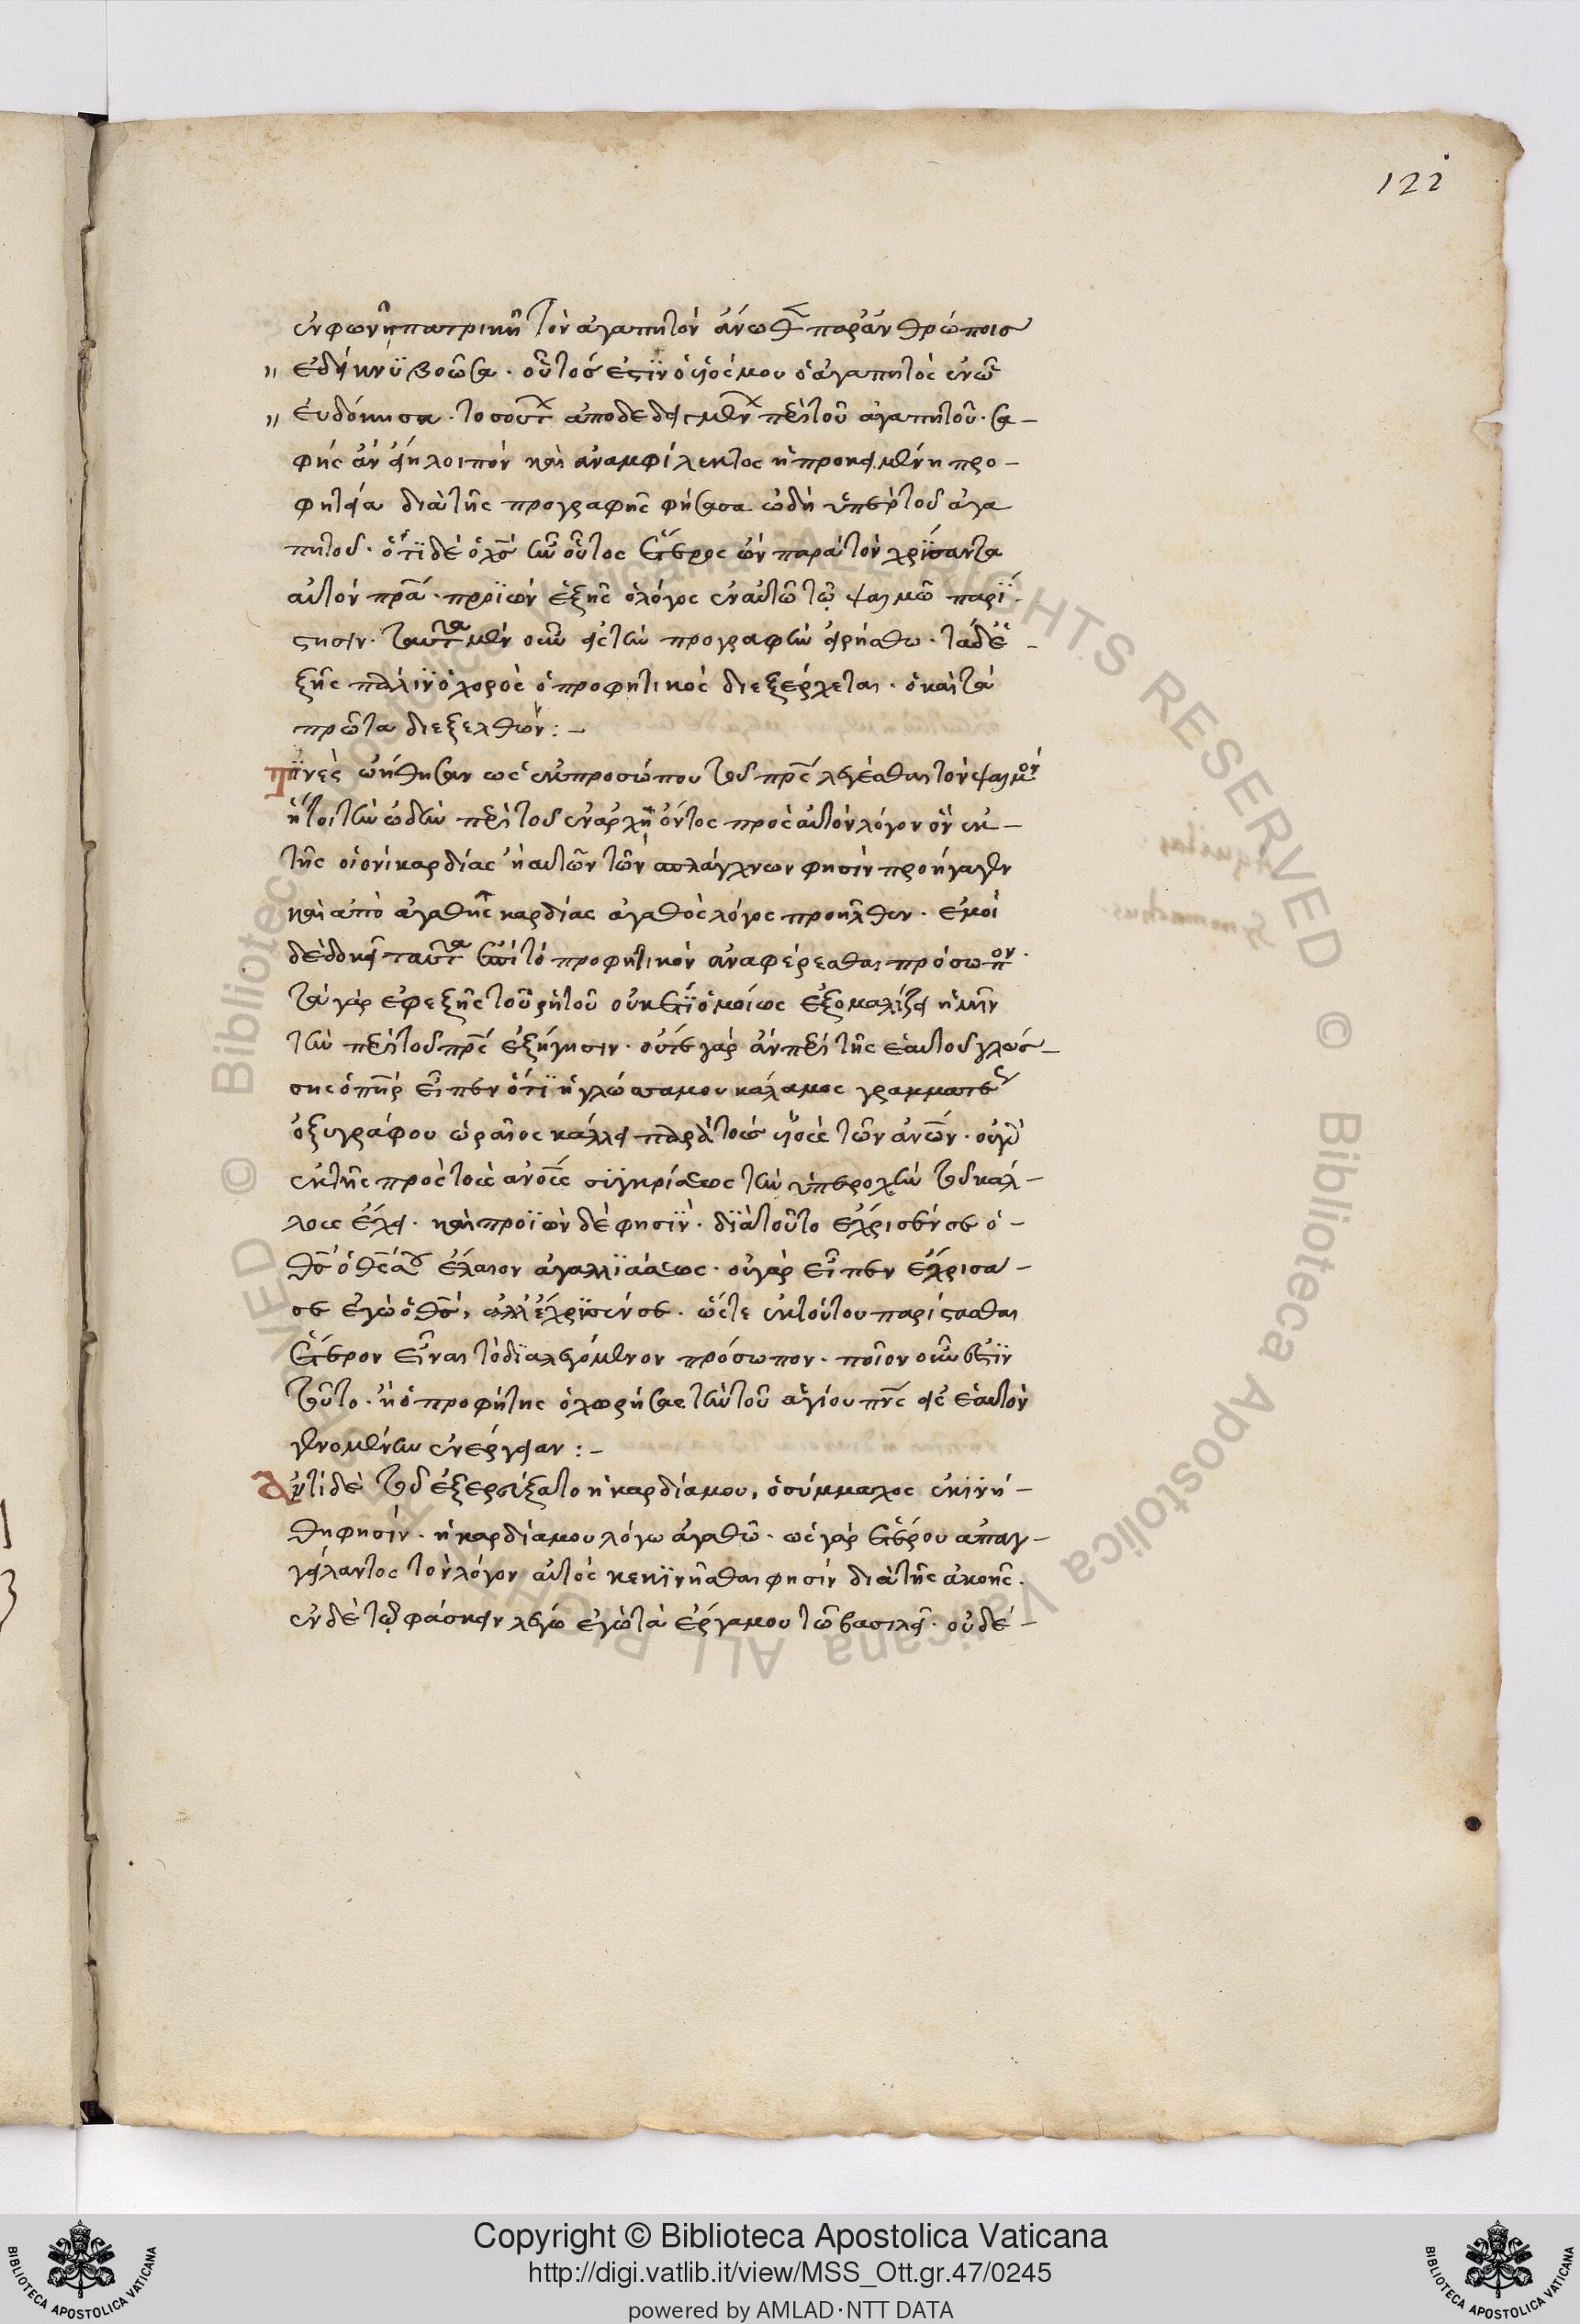 122
ἐν φωνῆ πατρικῆ τὸν ἀγαπητὸν ἄνωθεν παρ' ἀνθρώποις
ἐδείκνυ βοῶσα· οὗτός ἐστιν ὁ υἱός μου ὁ ἀγαπητὸς ἐν ὧ
εὐδόκησα· τοσούτων ἀποδεδειγμένων περὶ τοῦ ἀγαπητοῦ· σα-
φὴς ἂν εἴη λοιπὸν καὶ ἀναμφίλεκτος ἡ προκειμένη προ-
φητεία διὰ τῆς προγραφῆς φήσασα ὠδὴ ὑπὲρ τοῦ ἀγα
πητοῦ· ὅτι δὲ ὁ χς ἦν οὗτος ἕτερος ὢν παρὰ τὸν χρίσαντα
αὐτὸν πρα· προϊὼν ἑξῆς ὁ λόγος ἐν αὐτῶ τῶ ψαλμῶ παρί-
στησιν· ταῦτα μὲν οὖν εἰς τὴν προγραφὴν εἰρήσθω· τὰ δὲ ἑ-
ξῆς πάλιν ὁ χορὸς ὁ προφητικὸς διεξέρχεται· ὁ καὶ τὰ
πρῶτα διεξελθών:-
Τινὲς ὠήθησαν ὡς ἐκ προσώπου τοῦ πρς λέγεσθαι τὸν ψαλμὸν
ἤτοι τὴν ὠδὴν περὶ τοῦ ἐν ἀρχῆ ὄντος πρὸς αὐτὸν λόγον ὃν ἐκ
τῆς οἱονεὶ καρδίας ἢ αὐτῶν τῶν σπλάγχνων φησὶν προήγαγεν
καὶ ἀπὸ ἀγαθῆς καρδίας ἀγαθὸς λόγος προῆλθεν· ἐμοὶ
δὲ δοκεῖ ταῦτα ἐπὶ τὸ προφητικὸν ἀναφέρεσθαι πρόσωπον·
τὰ γὰρ ἐφεξῆς τοῦ ῥητοῦ οὐκ ἔτι ὁμοίως ἐξομαλίζει ἡμῖν
τὴν περὶ τοῦ πρς ἐξήγησιν· οὔτε γὰρ ἂν περὶ τῆς ἑαυτοῦ γλώσ-
σης ὁ πὴρ εἶπεν ὅτι ἡ γλῶσσα μου κάλαμος γραμματέως
ὀξυγράφου ὡραῖος κάλλει παρὰ τοὺς υἱοὺς τῶν ἀνων· οὐ γὰρ
ἐκ τῆς πρὸς τοὺς ἀνους συγκρίσεως τὴν ὑπεροχὴν τοῦ κάλ-
λους ἔχει· καὶ προϊὼν δὲ φησὶν· διὰ τοῦτο ἔχρισέν σε ὁ
θς ὁ θς σου ἔλαιον ἀγαλλιάσεως· οὐ γὰρ εἶπεν ἔχρισα
σε ἐγὼ ὁ θς, ἀλλ' ἔχρισέν σε· ὥστε ἐκ τούτου παρίστασθαι
ἕτερον εἶναι τὸ διαλεγόμενον πρόσωπον· ποῖον οὖν ἐστὶν
τοῦτο· ἢ ὁ προφήτης ὁ χωρήσας τὴν τοῦ ἁγίου πνς εἰς ἑαυτὸν
γενομένην ἐνέργειαν:-
Ἀντὶ δὲ τοῦ ἐξερεύξατο ἡ καρδία μου, ὁ σύμμαχος ἐκινή-
θη φησίν· ἡ καρδία μου λόγω ἀγαθῶ· ὡς γὰρ ἑτέρου ἀπαγ-
γείλαντος τὸν λόγον αὐτὸς κεκινῆσθαι φησὶν διὰ τῆς ἀκοῆς·
ἐν δὲ τῶ φάσκειν λέγω ἐγὼ τὰ ἔργα μου τῶ βασιλεῖ· οὐδὲ-
Copyright © Biblioteca Apostolica Vaticana
http://digi.vatlib.it/view/MSS_Ott.gr.47/0245
powered by AMLAD·NTT DATA